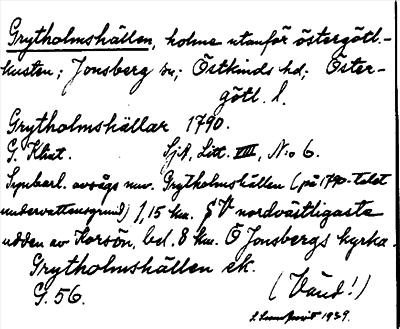 Grytholmshällen, holme utanför östergötl.-
kusten; Jonsberg sn; Östkinds hd; Öster-
götl. l.
Grytholmshällar 1790.
G. Klint. SjA, Litt. VIII, N:o 6.
Synbarl. avsågs nuv. Grytholmshällen (på 1790-talet
undervattensgrund), 1,15 km. V nordvästligaste
udden av Korsön, bel. 8 km. O Jonsbergs kyrka.
Grytholmshällen ek.
G. 56. (Vänd!)
1939.